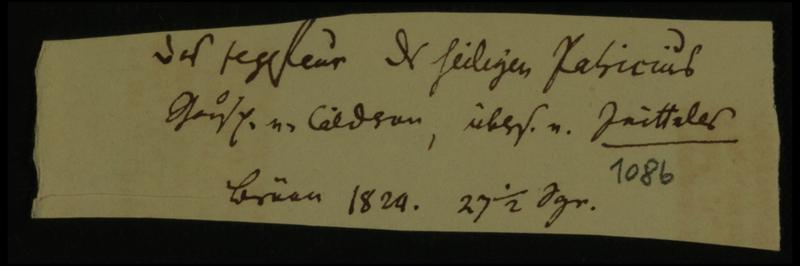 Das Fegefeuer des heiligen Patricius
Schausp. v. Calderon, übers. v. Jeitteles
1086
Brünn 1824. 27 1/2 Sgr.